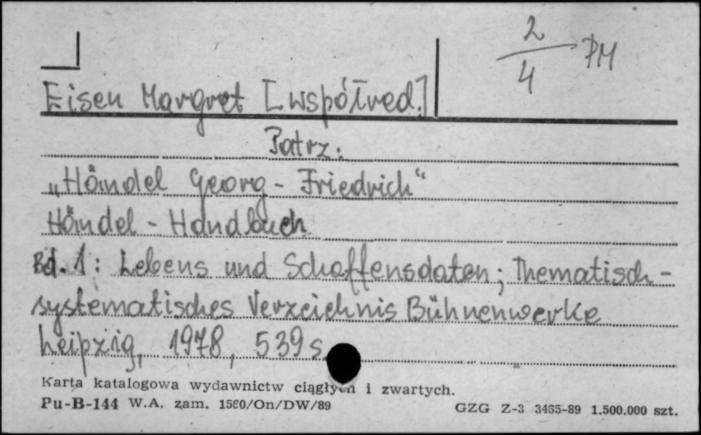 2/4 PM
Eisen Margret [współred.]
Patrz:
„Händel Georg - Friedrich“
Händel - Handbuch
Bd. 1: Lebens und Schaffensdaten; Thematisch-
systematisches Verzeichnis Bühnenwerke
Leipzig, 1978, 539 s.
Karta katalogowa wydawnictw ciągłych i zwartych.
Pu-B-144 W.A. zam. 1580/On/DW/89 GZG Z-3 3465-89 1.500.000 szt.